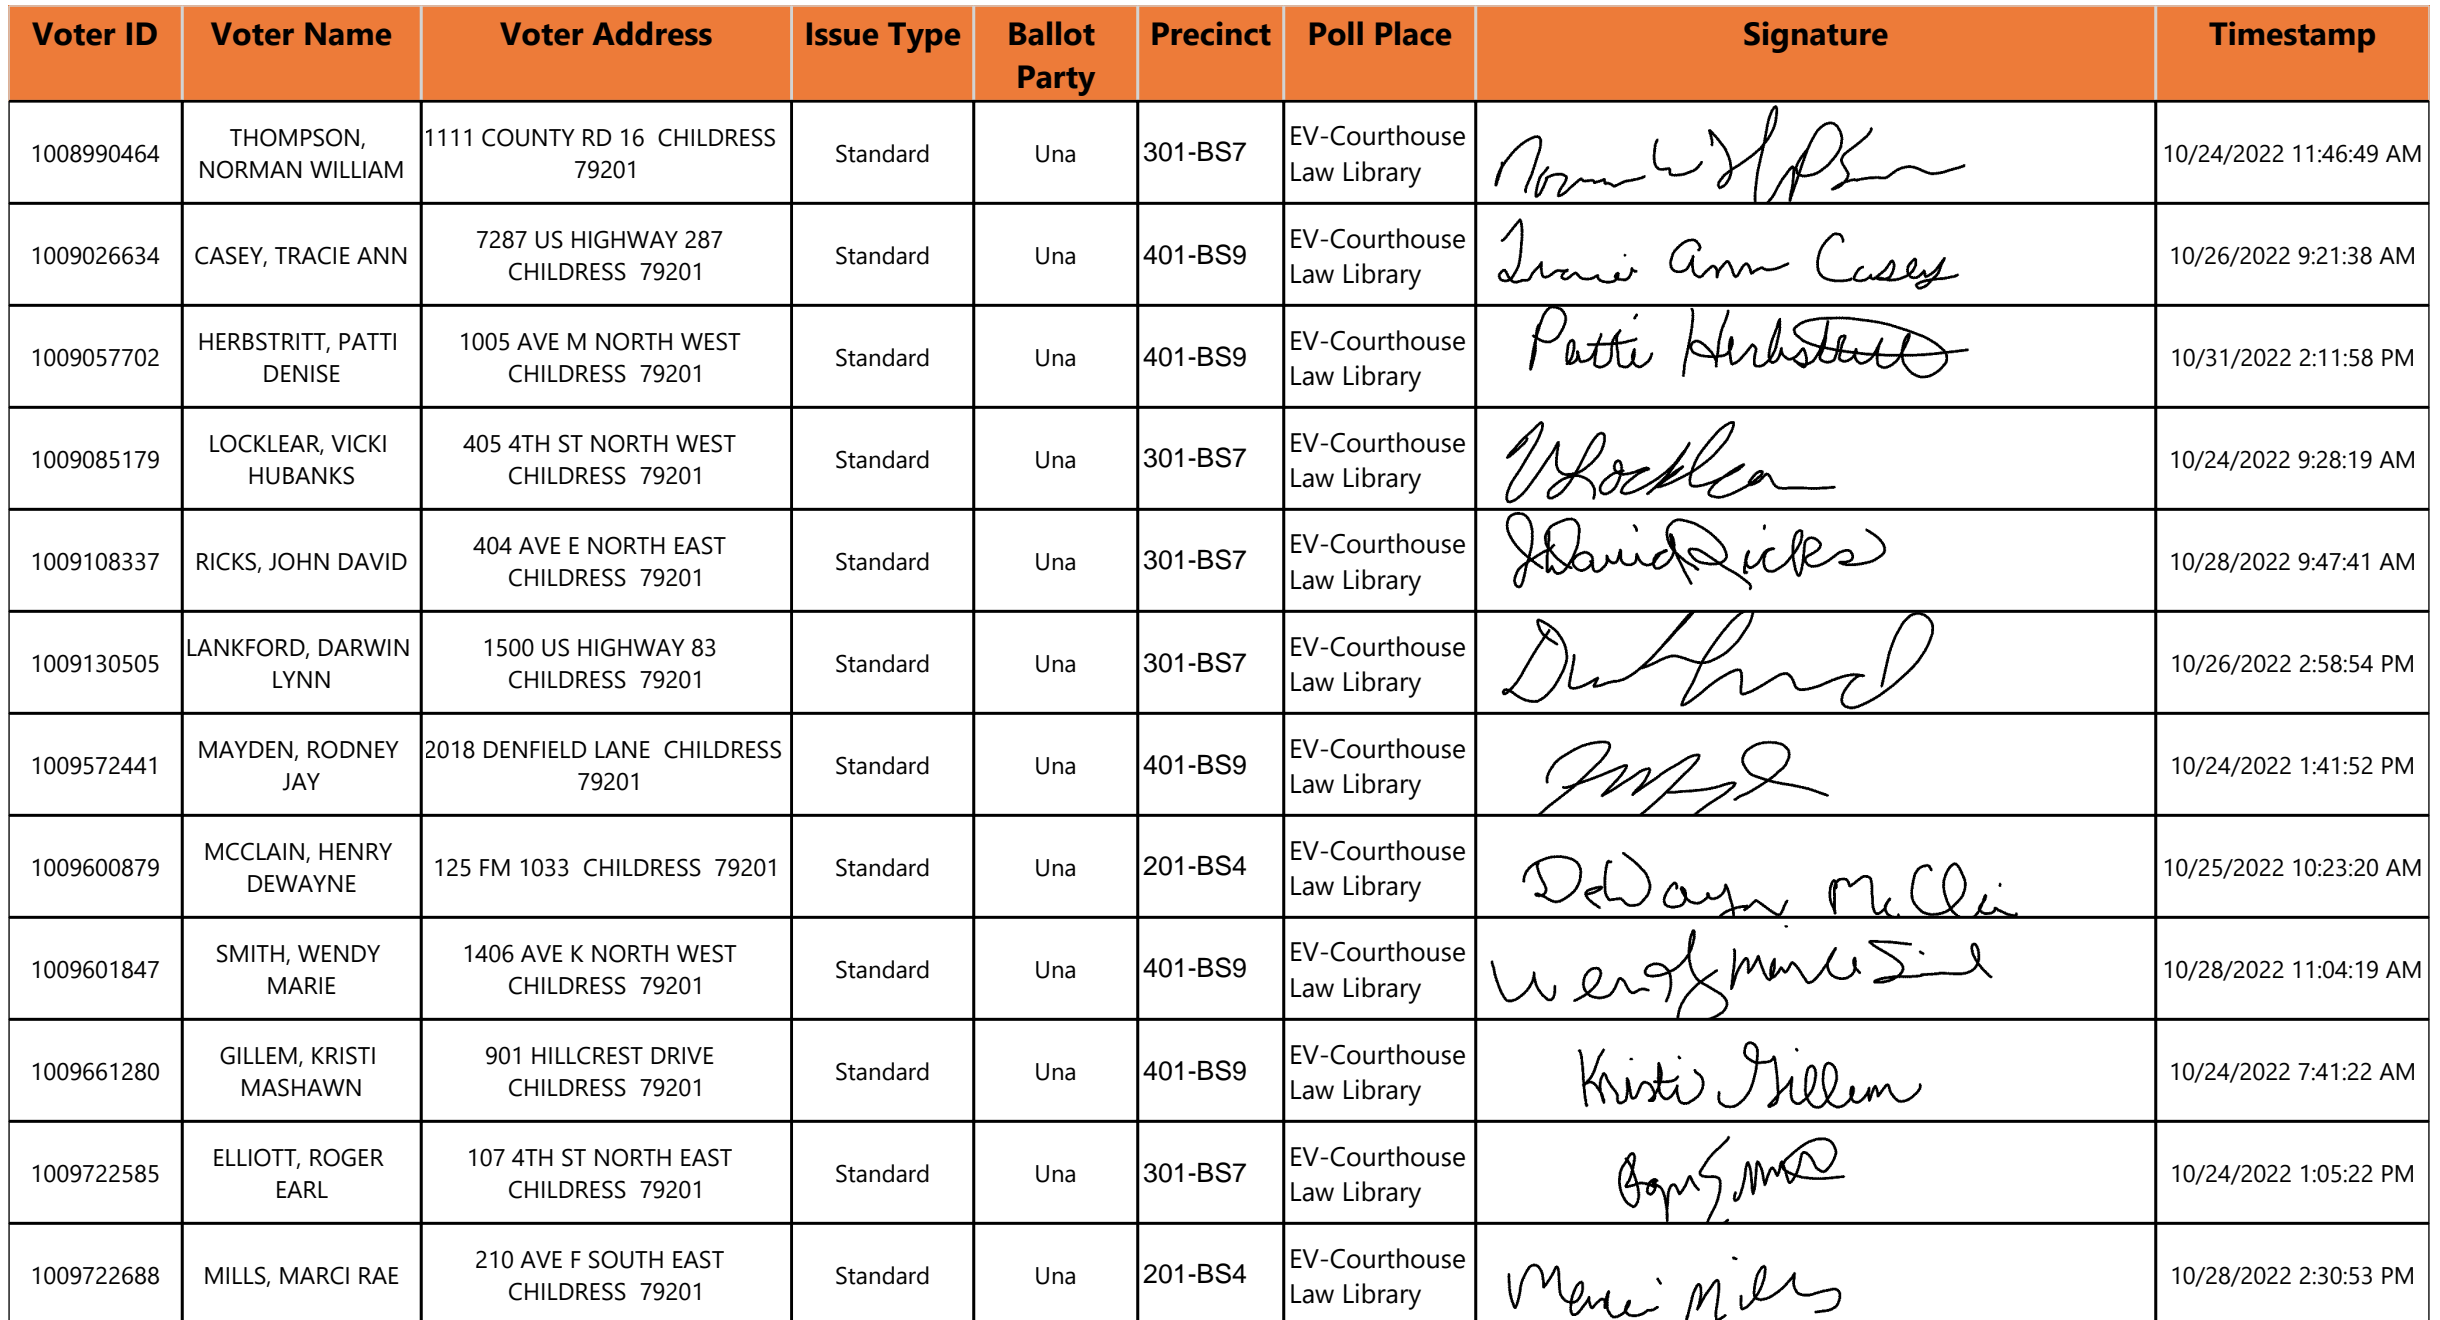 Voter ID Voter Name Voter Address Issue Type Ballot Party Precinct Poll Place Signature Timestamp
1008990464 THOMPSON, NORMAN WILLIAM 1111 COUNTY RD 16 CHILDRESS 79201 Standard Una 301-BS7 EV-Courthouse Law Library 10/24/2022 11:46:49 AM
1009026634 CASEY, TRACIE ANN 7287 US HIGHWAY 287 CHILDRESS 79201 Standard Una 401-BS9 EV-Courthouse Law Library Tracie Ann Casey 10/26/2022 9:21:38 AM
1009057702 HERBSTRITT, PATTI DENISE 1005 AVE M NORTH WEST CHILDRESS 79201 Standard Una 401-BS9 EV-Courthouse Law Library Patti Herbstritt 10/31/2022 2:11:58 PM
1009085179 LOCKLEAR, VICKI HUBANKS 405 4TH ST NORTH WEST CHILDRESS 79201 Standard Una 301-BS7 EV-Courthouse Law Library V Locklear 10/24/2022 9:28:19 AM
1009108337 RICKS, JOHN DAVID 404 AVE E NORTH EAST CHILDRESS 79201 Standard Una 301-BS7 EV-Courthouse Law Library J David Ricks 10/28/2022 9:47:41 AM
1009130505 LANKFORD, DARWIN LYNN 1500 US HIGHWAY 83 CHILDRESS 79201 Standard Una 301-BS7 EV-Courthouse Law Library 10/26/2022 2:58:54 PM
1009572441 MAYDEN, RODNEY JAY 2018 DENFIELD LANE CHILDRESS 79201 Standard Una 401-BS9 EV-Courthouse Law Library 10/24/2022 1:41:52 PM
1009600879 MCCLAIN, HENRY DEWAYNE 125 FM 1033 CHILDRESS 79201 Standard Una 201-BS4 EV-Courthouse Law Library 10/25/2022 10:23:20 AM
1009601847 SMITH, WENDY MARIE 1406 AVE K NORTH WEST CHILDRESS 79201 Standard Una 401-BS9 EV-Courthouse Law Library Wendy Marie 10/28/2022 11:04:19 AM
1009661280 GILLEM, KRISTI MASHAWN 901 HILLCREST DRIVE CHILDRESS 79201 Standard Una 401-BS9 EV-Courthouse Law Library Kristi Gillem 10/24/2022 7:41:22 AM
1009722585 ELLIOTT, ROGER EARL 107 4TH ST NORTH EAST CHILDRESS 79201 Standard Una 301-BS7 EV-Courthouse Law Library 10/24/2022 1:05:22 PM
1009722688 MILLS, MARCI RAE 210 AVE F SOUTH EAST CHILDRESS 79201 Standard Una 201-BS4 EV-Courthouse Law Library Marci Mills 10/28/2022 2:30:53 PM